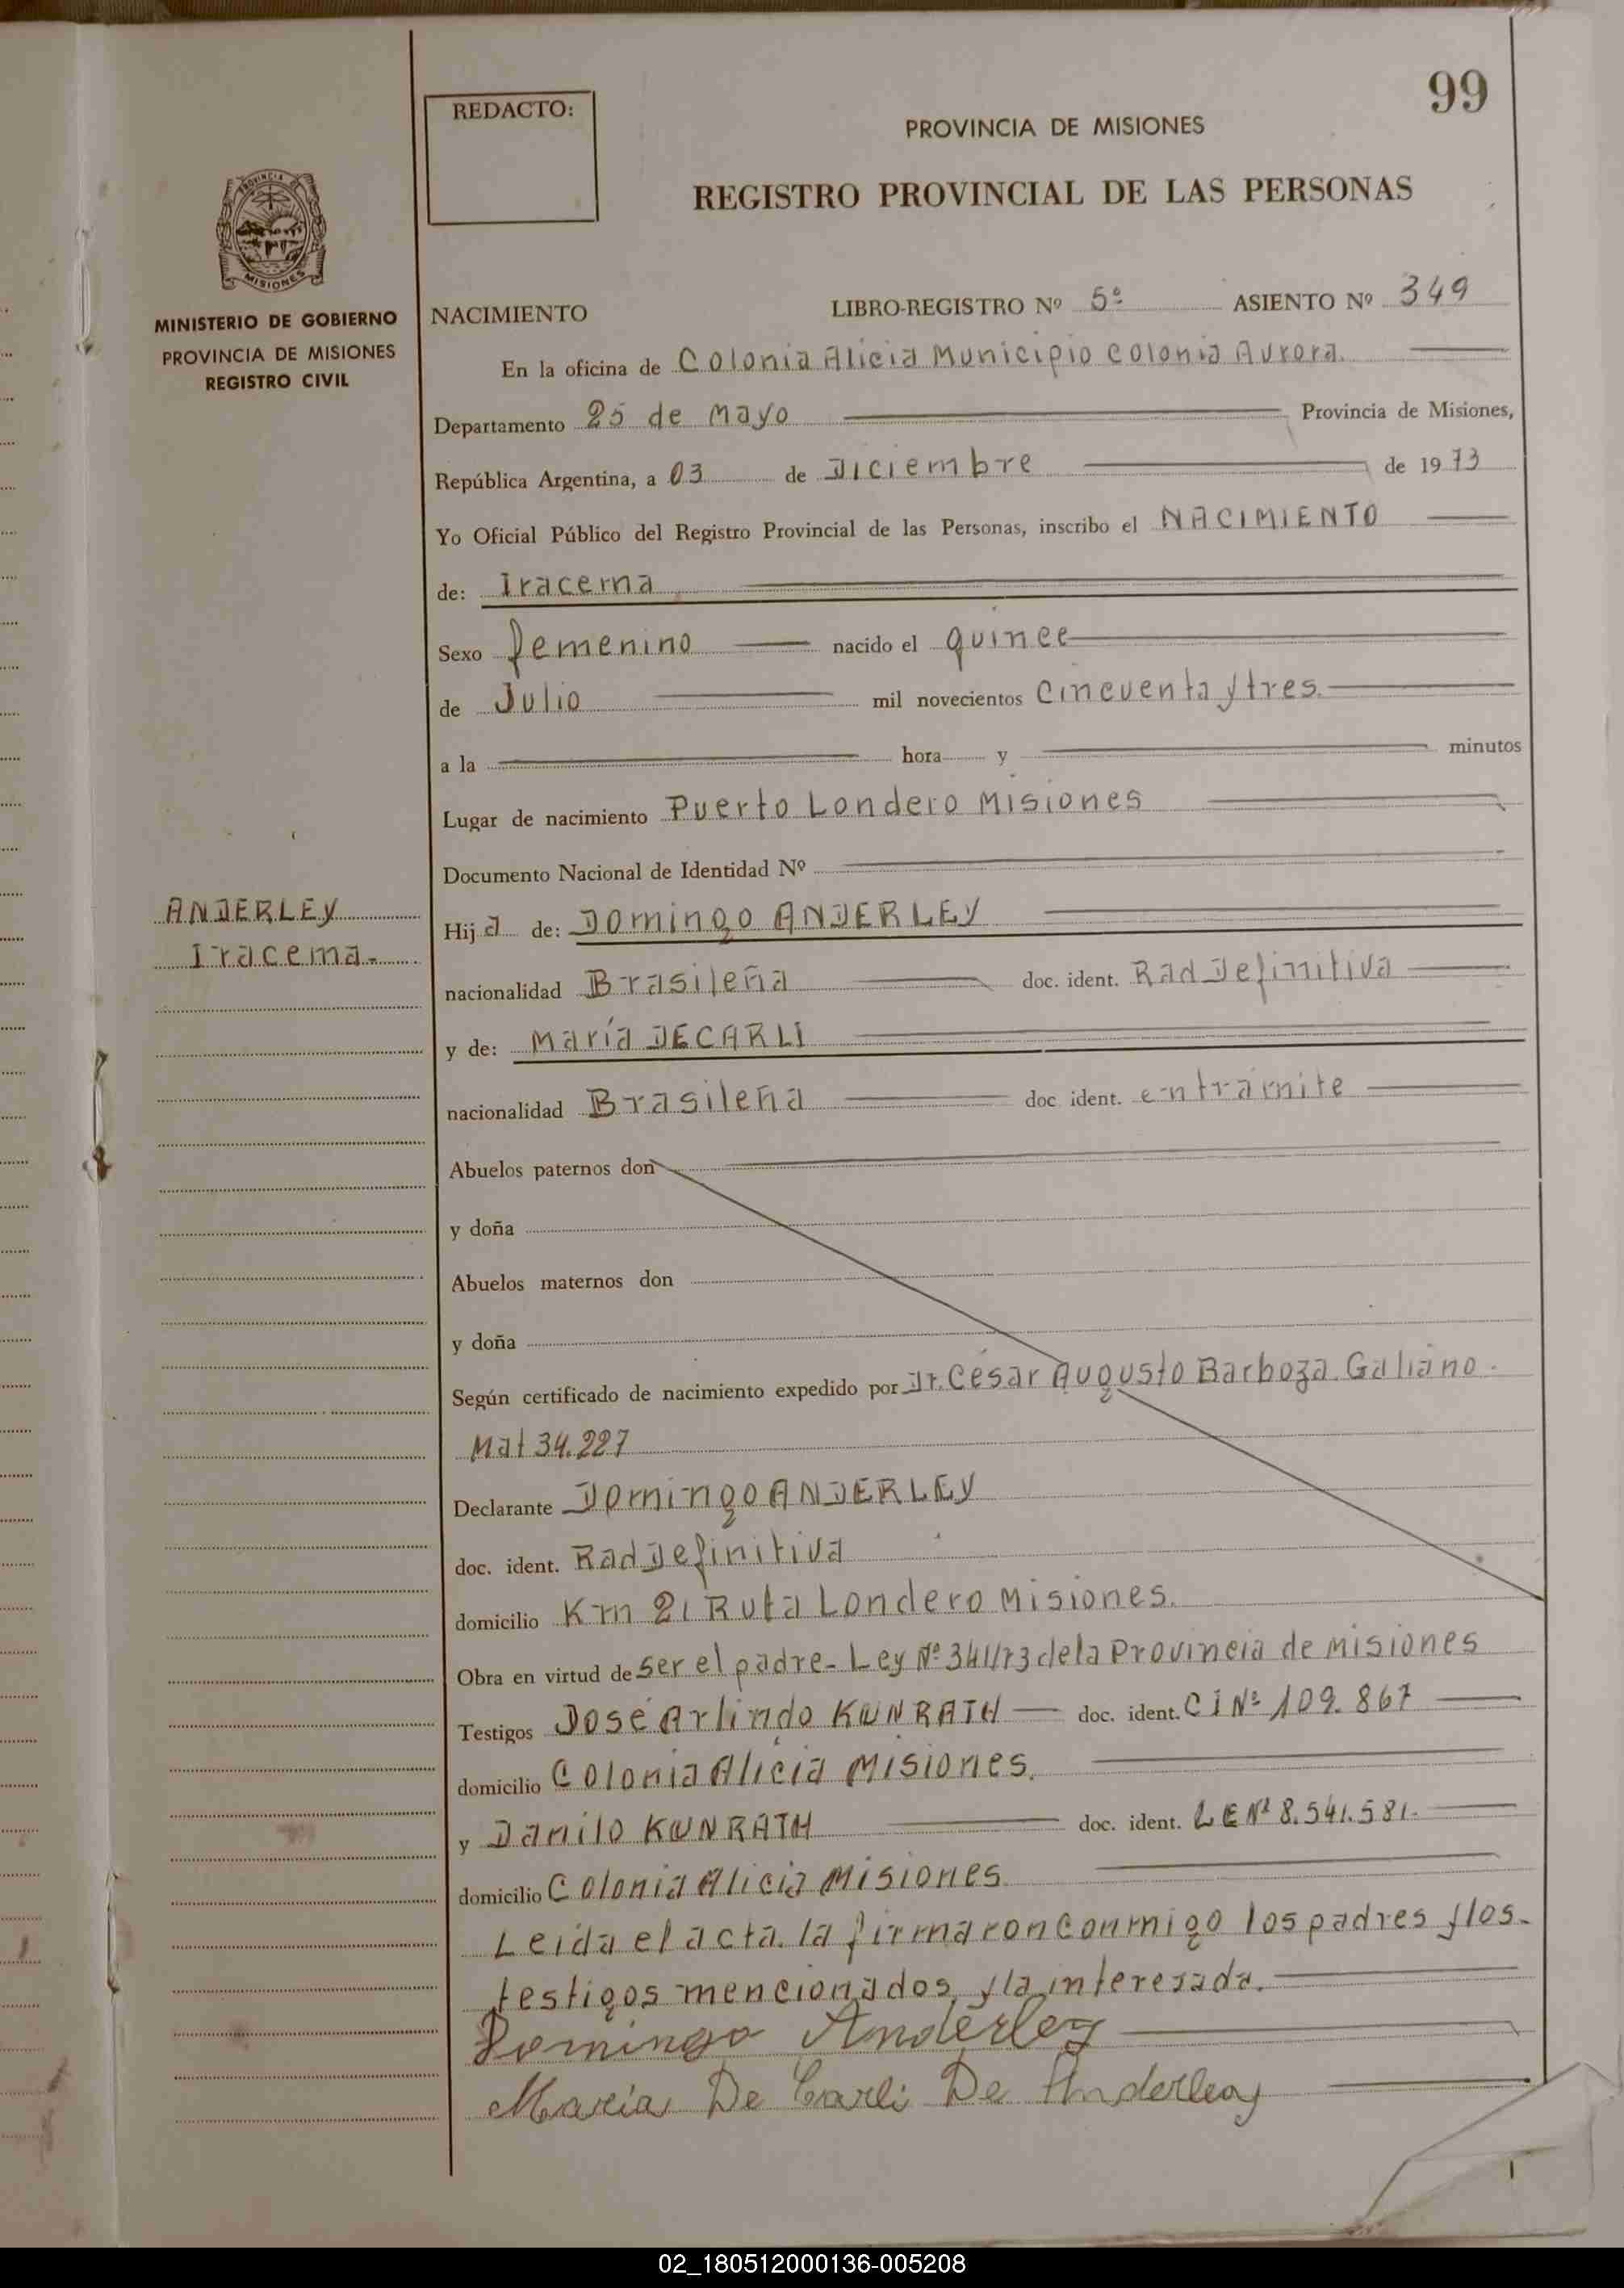 99
REDACTO:
PROVINCIA DE MISIONES
REGISTRO PROVINCIAL DE LAS PERSONAS
PROVINCIA DE
MISIONES
MINISTERIO DE GOBIERNO
PROVINCIA DE MISIONES
REGISTRO CIVIL
NACIMIENTO LIBRO-REGISTRO Nº 5º ASIENTO Nº 349
En la oficina de Colonia Alicia Municipio Colonia Aurora.
Departamento 25 de Mayo Provincia de Misiones,
República Argentina, a 03 de Diciembre de 1973
Yo Oficial Público del Registro Provincial de las Personas, inscribo el NACIMIENTO
de: Iracema
Sexo femenino nacido el quince
de Julio mil novecientos cincuenta y tres.
a la hora y minutos
Lugar de nacimiento Puerto Londero Misiones
Documento Nacional de Identidad Nº
ANDERLEY
Iracema.
Hija de: Domingo ANDERLEY
nacionalidad Brasileña doc. ident. Rad Definitiva
y de: María DECARLI
nacionalidad Brasileña doc ident. en trámite
Abuelos paternos don
y doña
Abuelos maternos don
y doña
Según certificado de nacimiento expedido por Dr. César Augusto Barboza Galiano.
Mat 34.227
Declarante Domingo ANDERLEY
doc. ident. Rad Definitiva
domicilio Km 21 Ruta Londero Misiones.
Obra en virtud de ser el padre- Ley Nº 341/73 de la Provincia de Misiones
Testigos José Arlindo KUNRATH doc. ident. CI Nº 109.867
domicilio Colonia Alicia Misiones.
y Danilo KUNRATH doc. ident. LE Nº 8.541.581.
domicilio Colonia Alicia Misiones
Leida el acta. la firmaron conmigo los padres y los-
testigos mencionados, y la interesada.
Domingo Anderley
María De Carli De Anderley
02_180512000136-005208